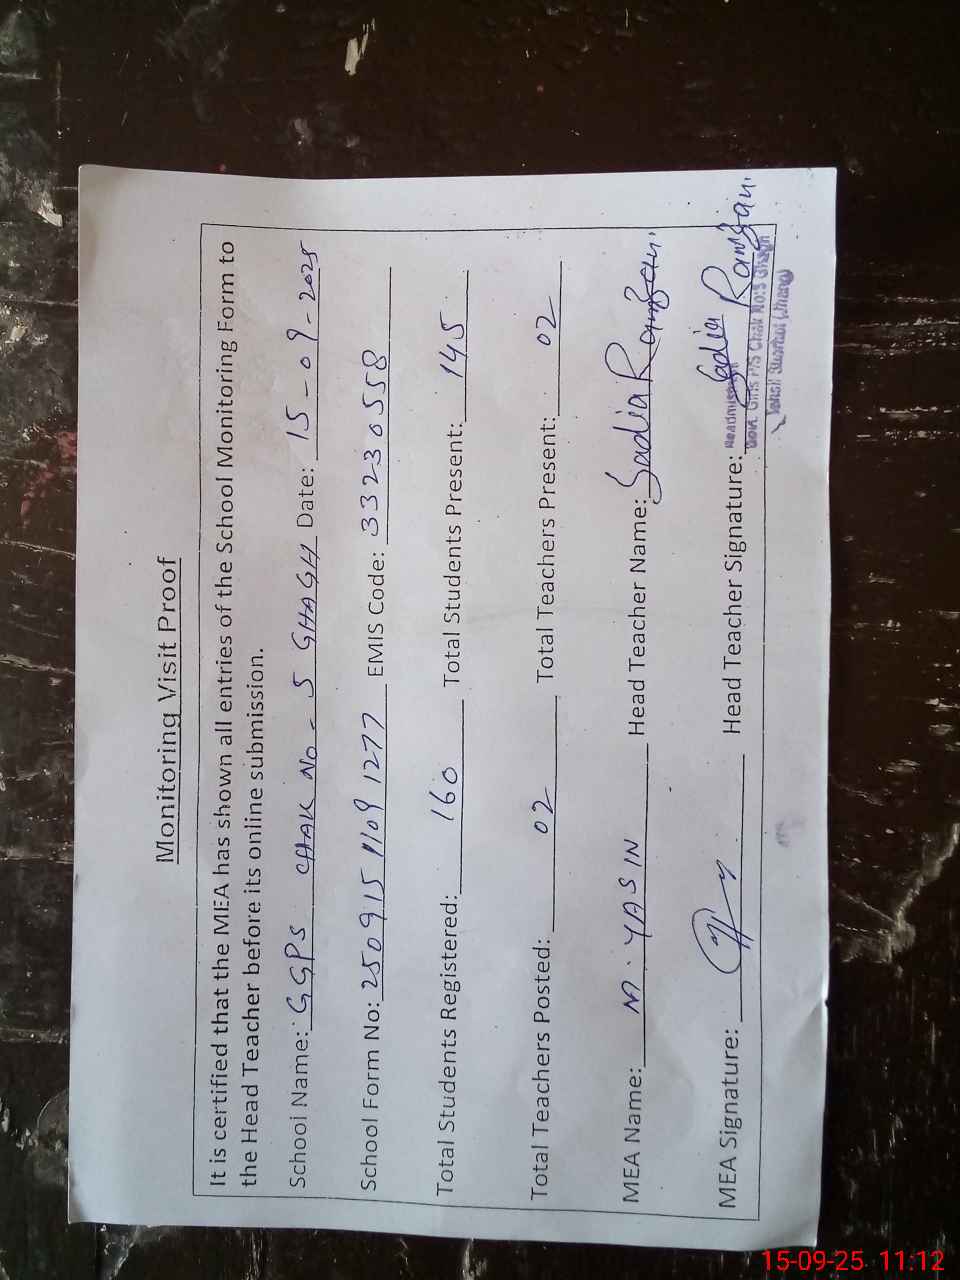 Monitoring Visit Proof
It is certified that the MEA has shown all entries of the School Monitoring Form to
the Head Teacher before its online submission.
School Name: GGPS CHAK NO - 5 GHAGH Date: 15-09-2025
School Form No: 250915 1109 1277 EMIS Code: 33230558
Total Students Registered: 160 Total Students Present: 145
Total Teachers Posted: 02 Total Teachers Present: 02
MEA Name: M. YASIN Head Teacher Name: Sadia Ramzan
MEA Signature: Head Teacher Signature: Sadia Ramzan
Headmistress
Govt. Girls P/S Chak No:5 Ghagh
15-09-25 11:12